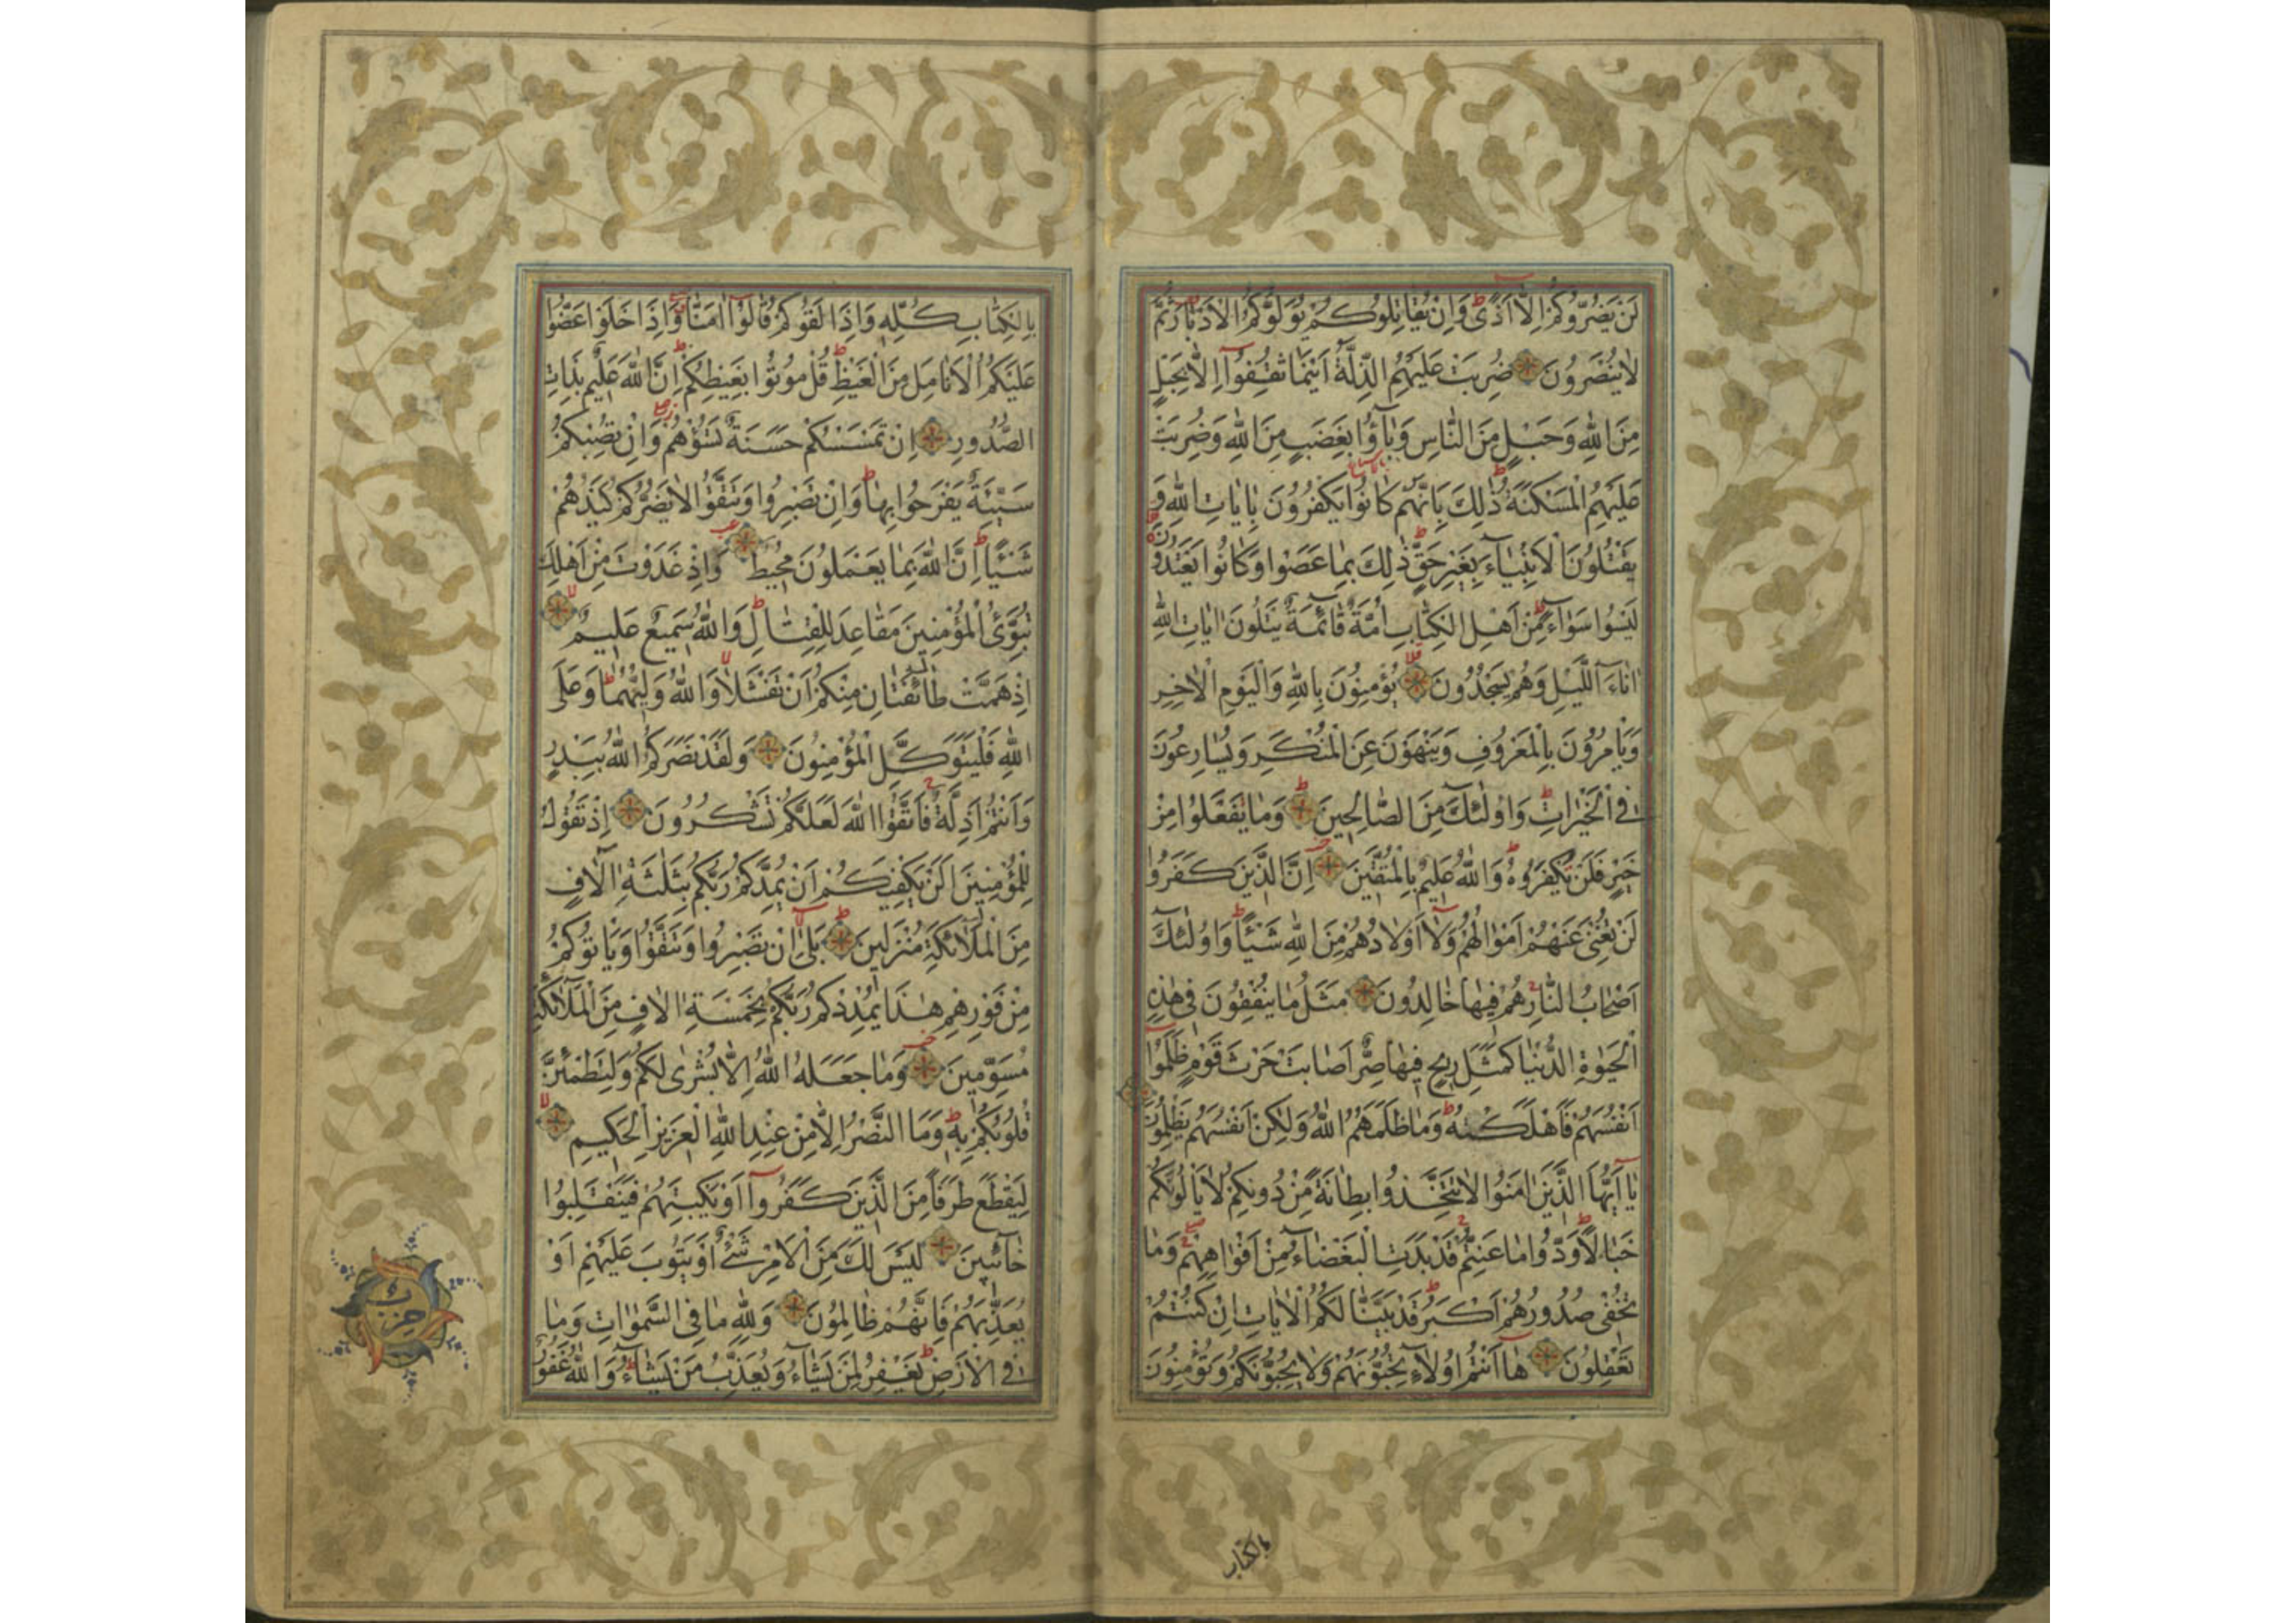 لَنْ يَضُرُّوكُمْ اِلَّا اَذًى وَاِنْ يُقَاتِلُوكُمْ يُوَلُّوكُمُ الْاَدْبَارَ ثُمَّ
لَا يُنْصَرُونَ ضُرِبَتْ عَلَيْهِمُ الذِّلَّةُ اَيْنَمَا ثُقِفُوا اِلَّا بِحَبْلٍ
مِنَ اللّٰهِ وَحَبْلٍ مِنَ النَّاسِ وَبَاؤُا بِغَضَبٍ مِنَ اللّٰهِ وَضُرِبَتْ
عَلَيْهِمُ الْمَسْكَنَةُ ذٰلِكَ بِاَنَّهُمْ كَانُوا يَكْفُرُونَ بِاٰيَاتِ اللّٰهِ وَ
يَقْتُلُونَ الْاَنْبِيَاءَ بِغَيْرِ حَقٍّ ذٰلِكَ بِمَا عَصَوْا وَكَانُوا يَعْتَدُونَ
لَيْسُوا سَوَاءً مِنْ اَهْلِ الْكِتَابِ اُمَّةٌ قَائِمَةٌ يَتْلُونَ اٰيَاتِ اللّٰهِ
اٰنَاءَ اللَّيْلِ وَهُمْ يَسْجُدُونَ يُؤْمِنُونَ بِاللّٰهِ وَالْيَوْمِ الْاٰخِرِ
وَيَأْمُرُونَ بِالْمَعْرُوفِ وَيَنْهَوْنَ عَنِ الْمُنْكَرِ وَيُسَارِعُونَ
فِي الْخَيْرَاتِ وَاُولٰئِكَ مِنَ الصَّالِحِينَ وَمَا يَفْعَلُوا مِنْ
خَيْرٍ فَلَنْ يُكْفَرُوهُ وَاللّٰهُ عَلِيمٌ بِالْمُتَّقِينَ اِنَّ الَّذِينَ كَفَرُوا
لَنْ تُغْنِيَ عَنْهُمْ اَمْوَالُهُمْ وَلَا اَوْلَادُهُمْ مِنَ اللّٰهِ شَيْئًا وَاُولٰئِكَ
اَصْحَابُ النَّارِ هُمْ فِيهَا خَالِدُونَ مَثَلُ مَا يُنْفِقُونَ فِي هٰذِهِ
الْحَيٰوةِ الدُّنْيَا كَمَثَلِ رِيحٍ فِيهَا صِرٌّ اَصَابَتْ حَرْثَ قَوْمٍ ظَلَمُوا
اَنْفُسَهُمْ فَاَهْلَكَتْهُ وَمَا ظَلَمَهُمُ اللّٰهُ وَلٰكِنْ اَنْفُسَهُمْ يَظْلِمُونَ
يَا اَيُّهَا الَّذِينَ اٰمَنُوا لَا تَتَّخِذُوا بِطَانَةً مِنْ دُونِكُمْ لَا يَأْلُونَكُمْ
خَبَالًا وَدُّوا مَا عَنِتُّمْ قَدْ بَدَتِ الْبَغْضَاءُ مِنْ اَفْوَاهِهِمْ وَمَا
تُخْفِي صُدُورُهُمْ اَكْبَرُ قَدْ بَيَّنَّا لَكُمُ الْاٰيَاتِ اِنْ كُنْتُمْ
تَعْقِلُونَ هَا اَنْتُمْ اُولَاءِ تُحِبُّونَهُمْ وَلَا يُحِبُّونَكُمْ وَتُؤْمِنُونَ
بالكتاب
بِالْكِتَابِ كُلِّهِ وَاِذَا لَقُوكُمْ قَالُوا اٰمَنَّا وَاِذَا خَلَوْا عَضُّوا
عَلَيْكُمُ الْاَنَامِلَ مِنَ الْغَيْظِ قُلْ مُوتُوا بِغَيْظِكُمْ اِنَّ اللّٰهَ عَلِيمٌ بِذَاتِ
الصُّدُورِ اِنْ تَمْسَسْكُمْ حَسَنَةٌ تَسُؤْهُمْ وَاِنْ تُصِبْكُمْ
سَيِّئَةٌ يَفْرَحُوا بِهَا وَاِنْ تَصْبِرُوا وَتَتَّقُوا لَا يَضُرُّكُمْ كَيْدُهُمْ
شَيْئًا اِنَّ اللّٰهَ بِمَا يَعْمَلُونَ مُحِيطٌ وَاِذْ غَدَوْتَ مِنْ اَهْلِكَ
تُبَوِّئُ الْمُؤْمِنِينَ مَقَاعِدَ لِلْقِتَالِ وَاللّٰهُ سَمِيعٌ عَلِيمٌ
اِذْ هَمَّتْ طَائِفَتَانِ مِنْكُمْ اَنْ تَفْشَلَا وَاللّٰهُ وَلِيُّهُمَا وَعَلَى
اللّٰهِ فَلْيَتَوَكَّلِ الْمُؤْمِنُونَ وَلَقَدْ نَصَرَكُمُ اللّٰهُ بِبَدْرٍ
وَاَنْتُمْ اَذِلَّةٌ فَاتَّقُوا اللّٰهَ لَعَلَّكُمْ تَشْكُرُونَ اِذْ تَقُولُ
لِلْمُؤْمِنِينَ اَلَنْ يَكْفِيَكُمْ اَنْ يُمِدَّكُمْ رَبُّكُمْ بِثَلٰثَةِ اٰلَافٍ
مِنَ الْمَلَائِكَةِ مُنْزَلِينَ بَلٰى اِنْ تَصْبِرُوا وَتَتَّقُوا وَيَأْتُوكُمْ
مِنْ فَوْرِهِمْ هٰذَا يُمْدِدْكُمْ رَبُّكُمْ بِخَمْسَةِ اٰلَافٍ مِنَ الْمَلَائِكَةِ
مُسَوِّمِينَ وَمَا جَعَلَهُ اللّٰهُ اِلَّا بُشْرٰى لَكُمْ وَلِتَطْمَئِنَّ
قُلُوبُكُمْ بِهِ وَمَا النَّصْرُ اِلَّا مِنْ عِنْدِ اللّٰهِ الْعَزِيزِ الْحَكِيمِ
لِيَقْطَعَ طَرَفًا مِنَ الَّذِينَ كَفَرُوا اَوْ يَكْبِتَهُمْ فَيَنْقَلِبُوا
خَائِبِينَ لَيْسَ لَكَ مِنَ الْاَمْرِ شَيْءٌ اَوْ يَتُوبَ عَلَيْهِمْ اَوْ
يُعَذِّبَهُمْ فَاِنَّهُمْ ظَالِمُونَ وَلِلّٰهِ مَا فِي السَّمٰوَاتِ وَمَا
فِي الْاَرْضِ يَغْفِرُ لِمَنْ يَشَاءُ وَيُعَذِّبُ مَنْ يَشَاءُ وَاللّٰهُ غَفُورٌ
حزب